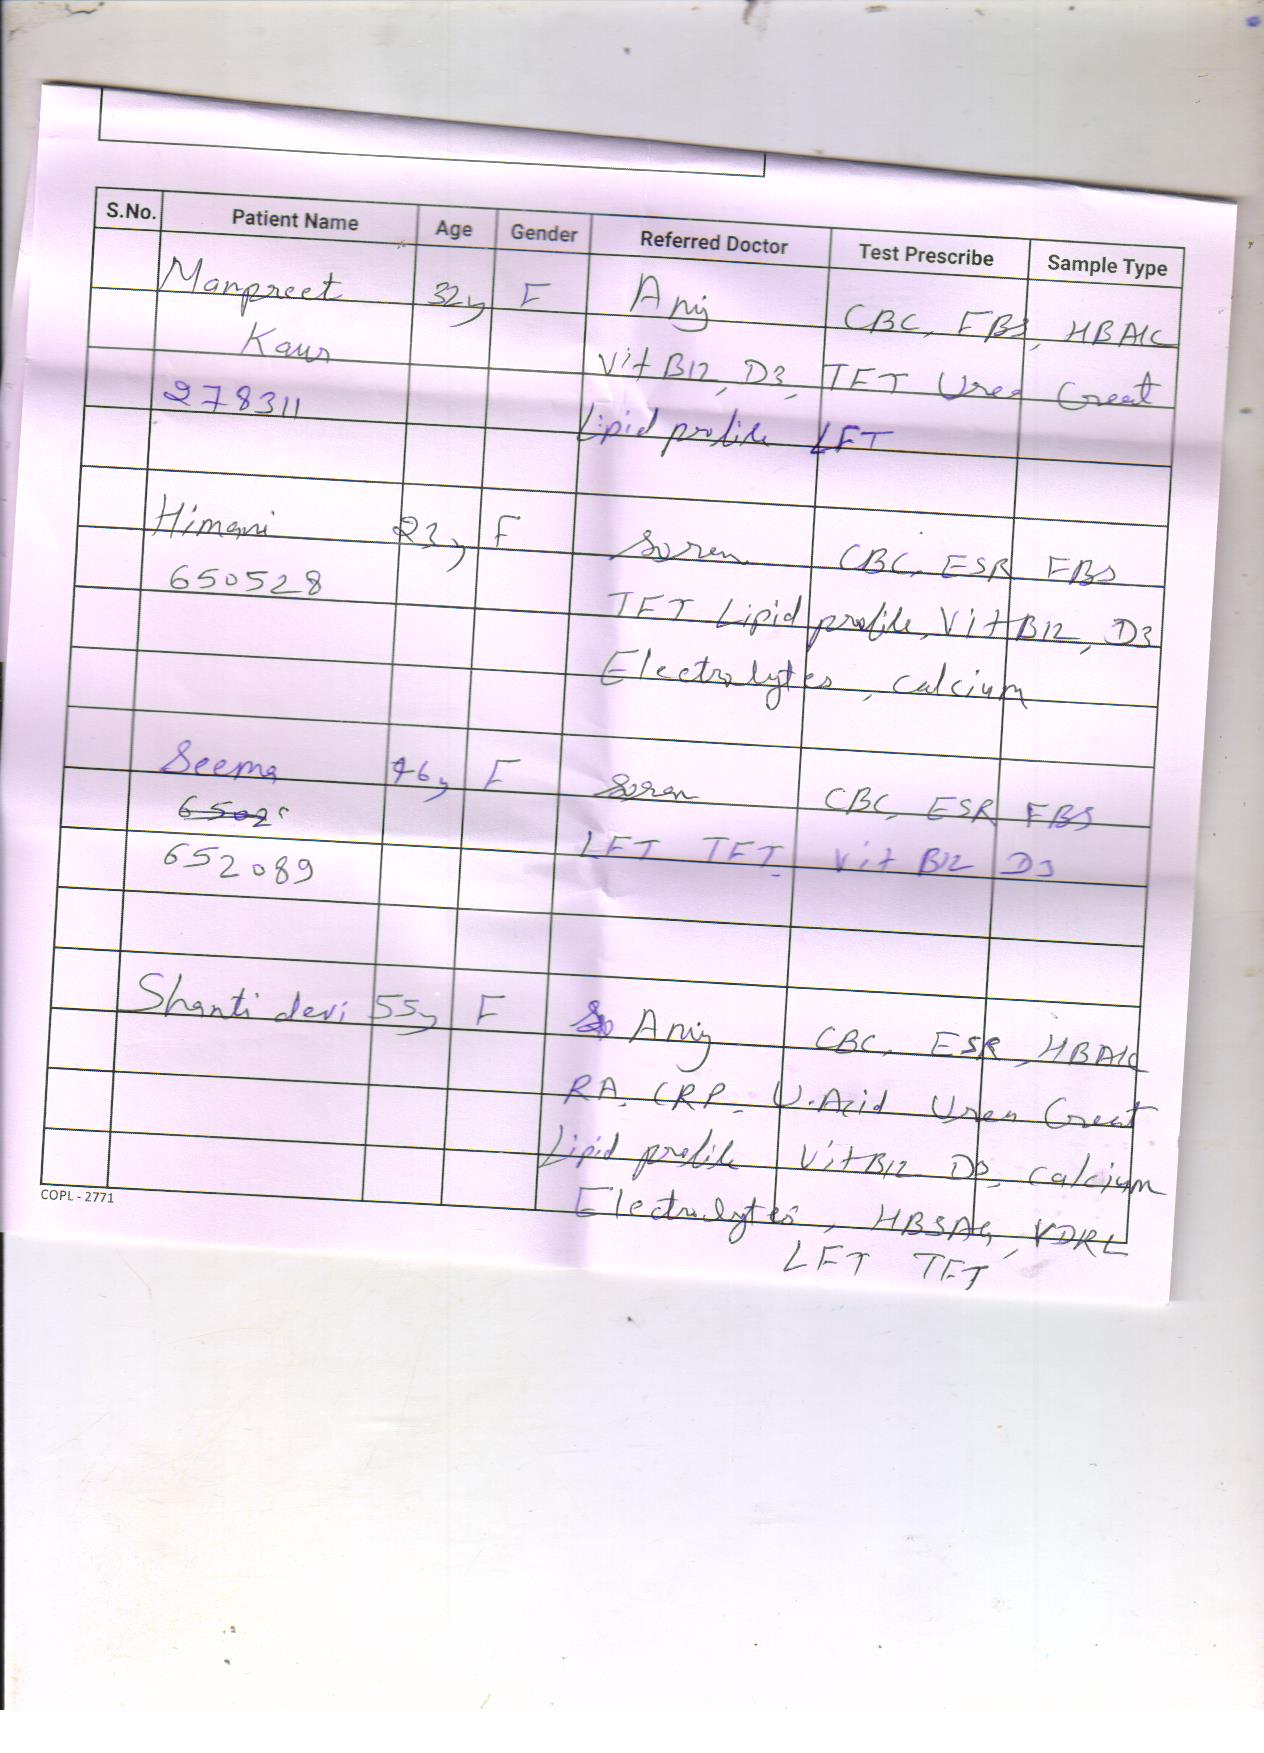 S.No. Patient Name Age Gender Referred Doctor Test Prescribe Sample Type
Manpreet 32y F CBC, FBS, HBA1C
Kaur Vit B12, D3, TFT Urea Creat
278311 Lipid profile LFT
Himani 23y F Soren CBC, ESR FBS
650528 TFT Lipid profile, Vit B12, D3
Electrolytes, calcium
Seema 46y F Soren CBC, ESR FBS
LFT TFT Vit B12 D3
652089
Shanti devi 55y F CBC, ESR, HBA1C
RA, CRP, U.Acid Urea Creat
Lipid profile Vit B12 D3, calcium
COPL - 2771
Electrolytes, HBSAG, VDRL
LFT TFT